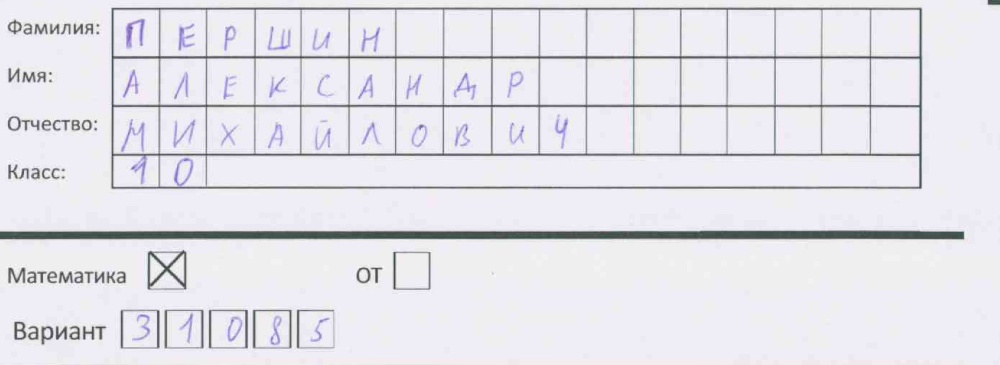 Фамилия: ПЕРШИН
Имя: АЛЕКСАНДР
Отчество: МИХАЙЛОВИЧ
Класс: 10
Математика ☒ ОТ ☐
Вариант 31085